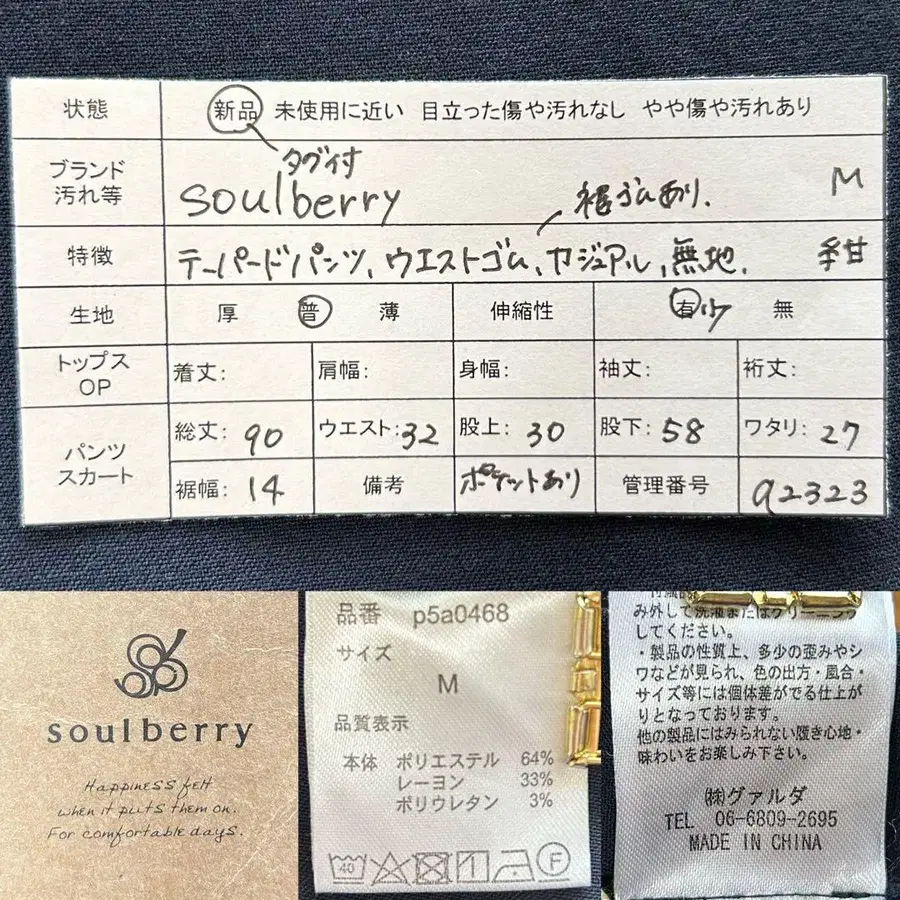 状態 新品 未使用に近い 目立った傷や汚れなし やや傷や汚れあり
タグ付
ブランド
汚れ等
soulberry
M
裾ゴムあり.
特徴 テーパードパンツ、ウエストゴム、カジュアル、無地. 紺
生地 厚 普 薄 伸縮性 有 少 無
トップス
OP
着丈: 肩幅: 身幅: 袖丈: 裄丈:
パンツ
スカート
総丈: 90 ウエスト: 32 股上: 30 股下: 58 ワタリ: 27
裾幅: 14 備考 ポケットあり 管理番号 a2323
soulberry
Happiness felt
when it puts them on.
For comfortable days.
品番 p5a0468
サイズ
M
品質表示
本体 ポリエステル 64%
レーヨン 33%
ポリウレタン 3%
40
F
み外して洗濯またはクリーニング
してください。
・製品の性質上、多少の歪みやシ
ワなどが見られ、色の出方・風合・
サイズ等には個体差がでる仕上が
りとなっております。
他の製品にはみられない履き心地・
味わいをお楽しみ下さい。
㈱グァルダ
TEL 06-6809-2695
MADE IN CHINA